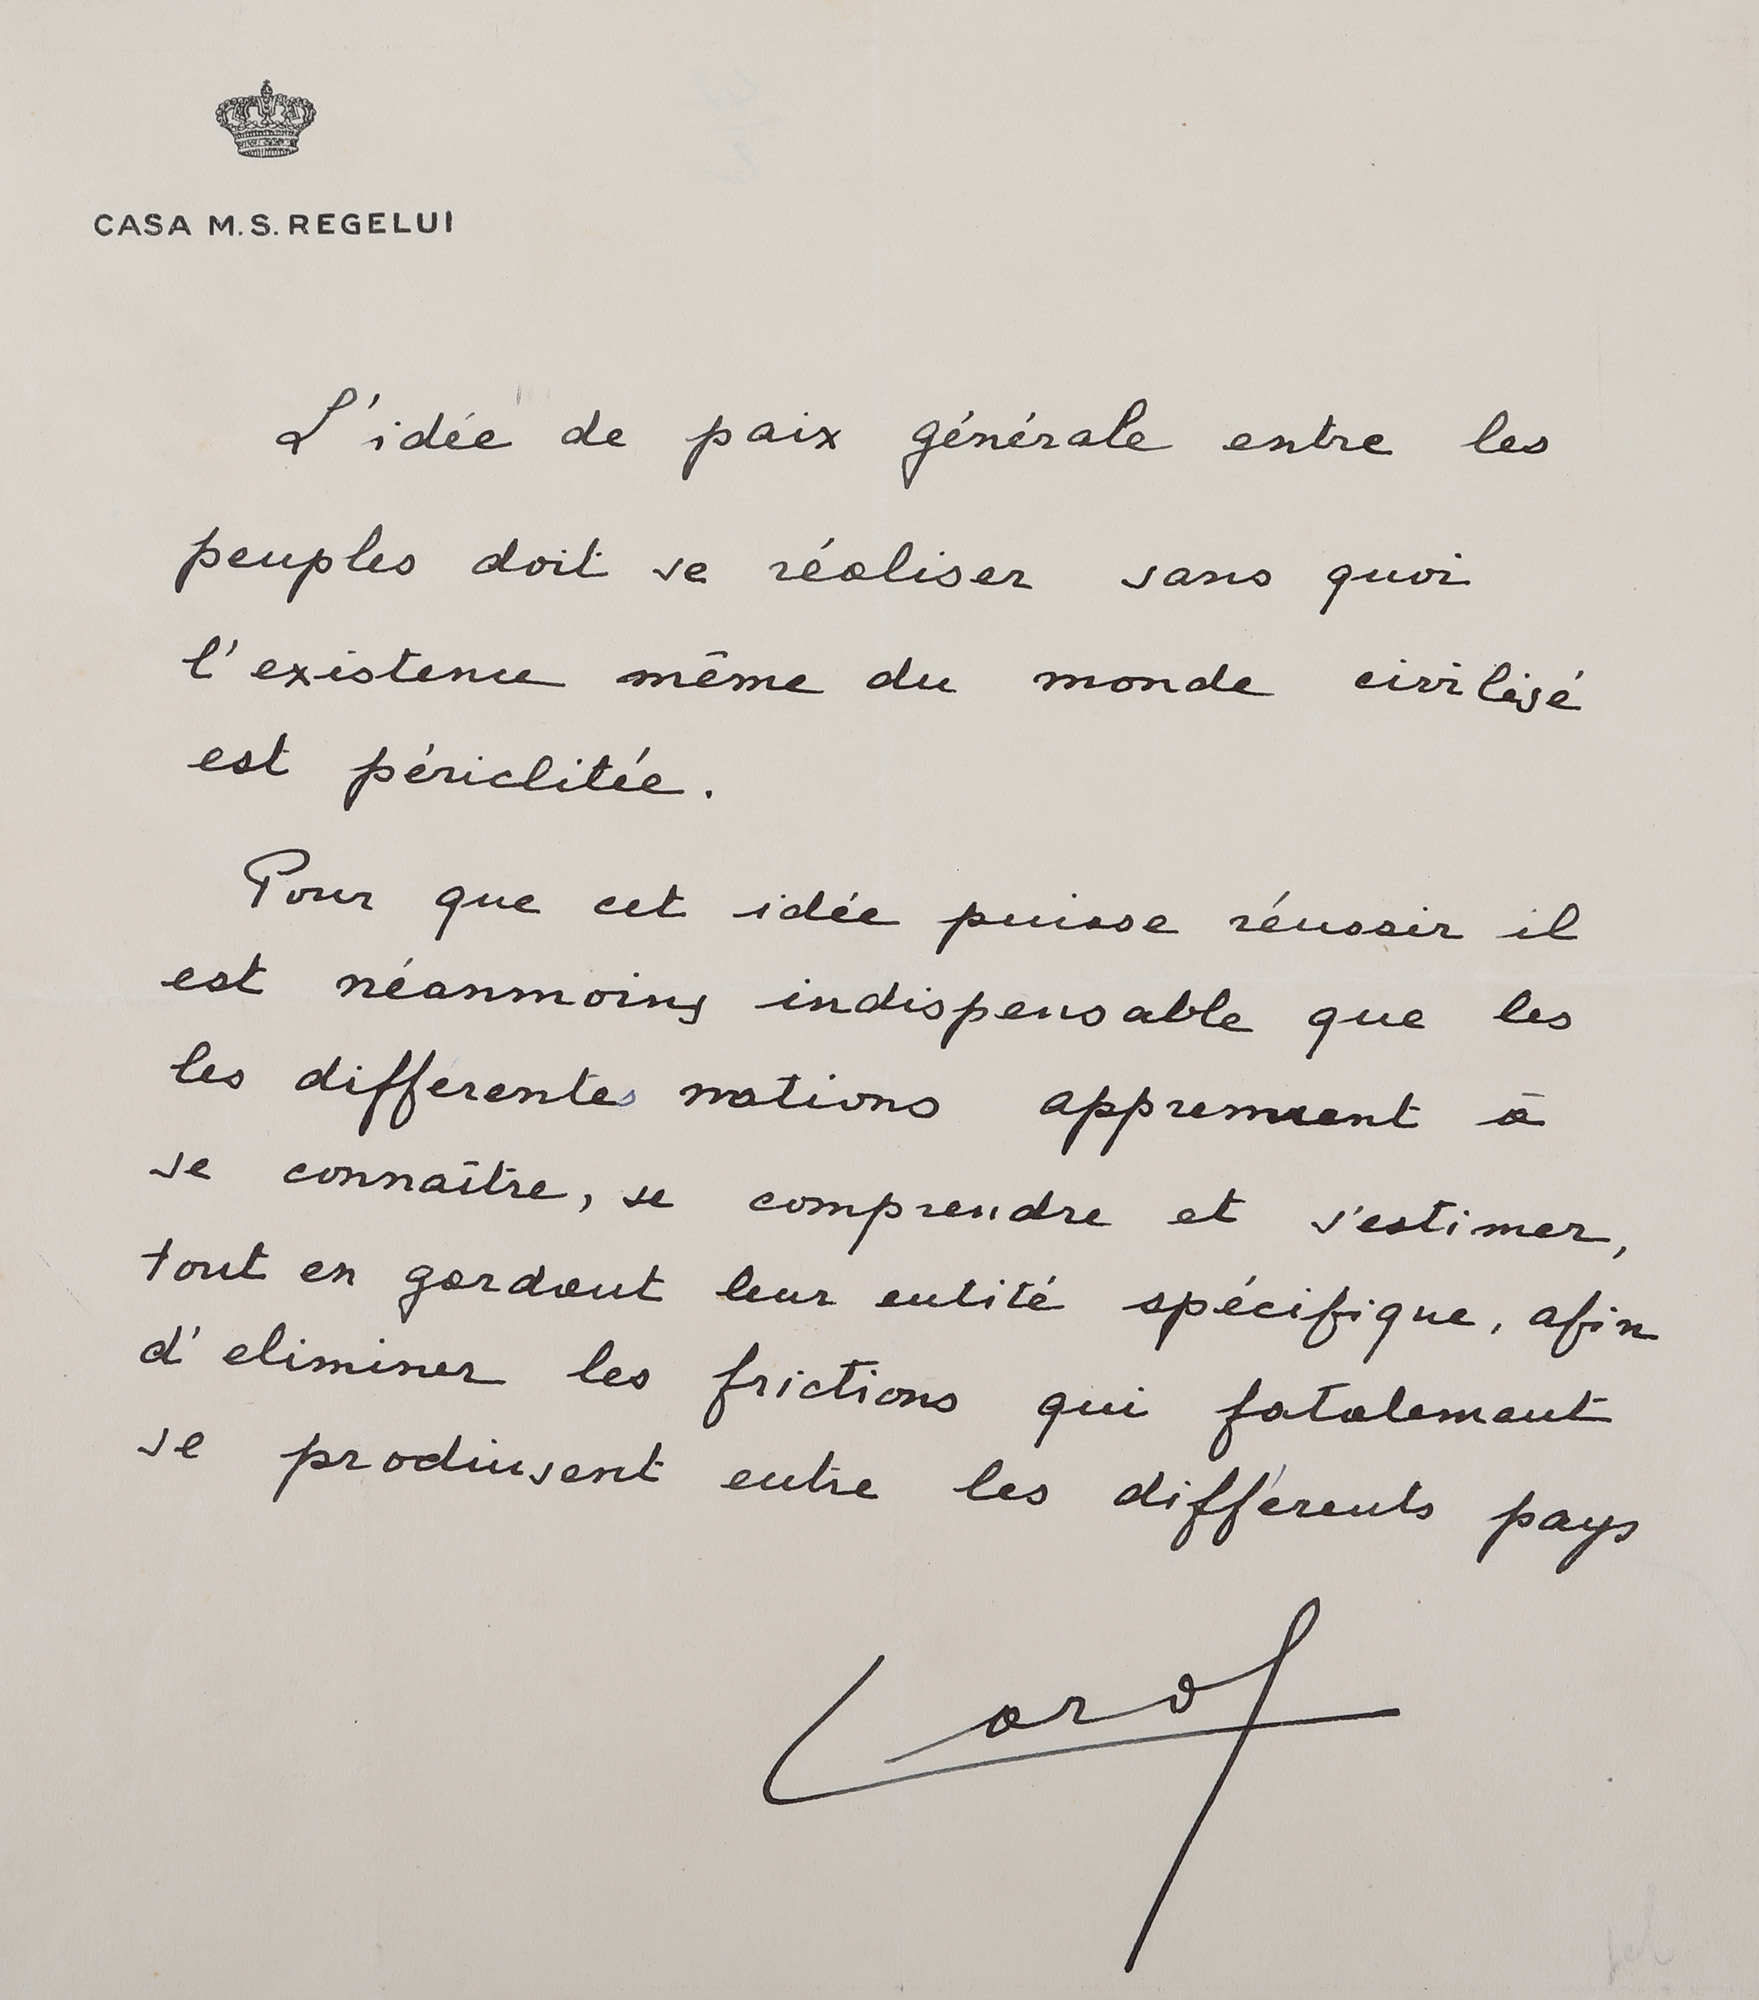 CASA M.S. REGELUI
L'idée de paix générale entre les
peuples doit se réaliser sans quoi
l'existence même du monde civilisé
est périclitée.
Pour que cet idée puisse réussir il
est néanmoins indispensable que les
les differentes nations apprennent à
se connaître, se comprendre et s'estimer,
tout en gardant leur entité spécifique, afin
d'eliminer les frictions qui fatalement
se produisent entre les différents pays
Carol